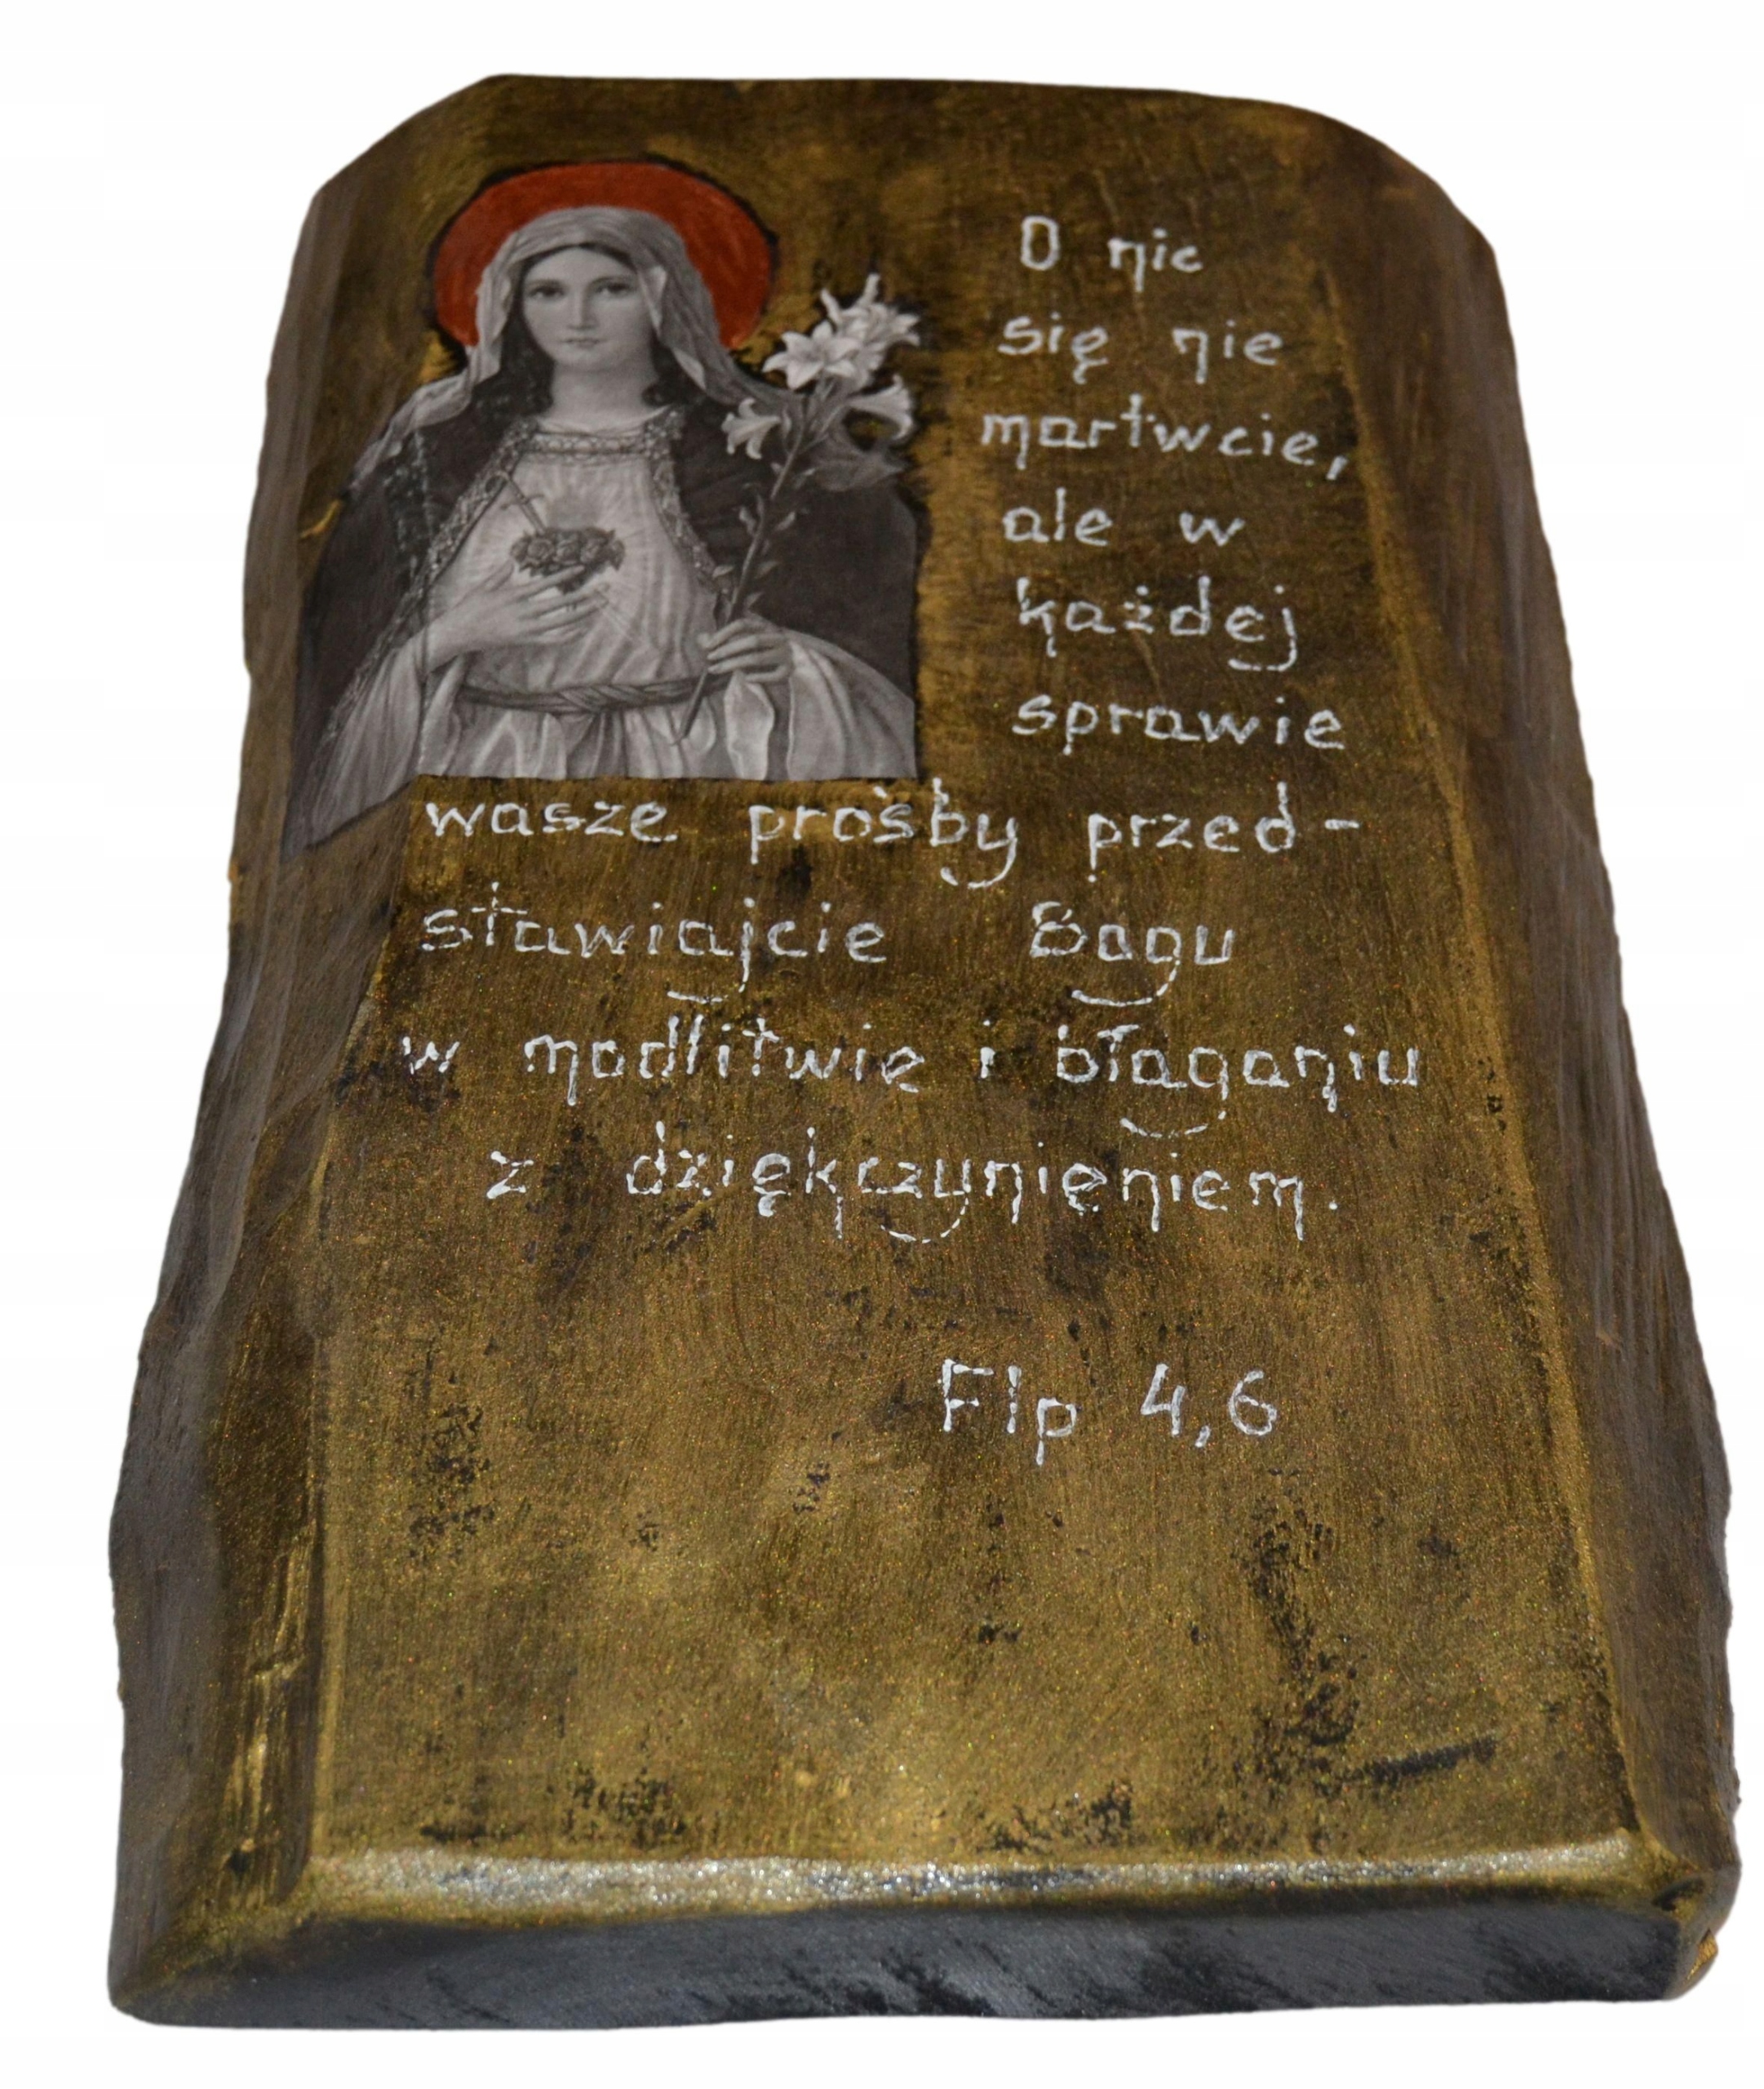 O nic
się nie
martwcie,
ale w
każdej
sprawie
wasze prośby przed-
stawiajcie Bogu
w modlitwie i błaganiu
z dziękczynieniem.
Flp 4,6